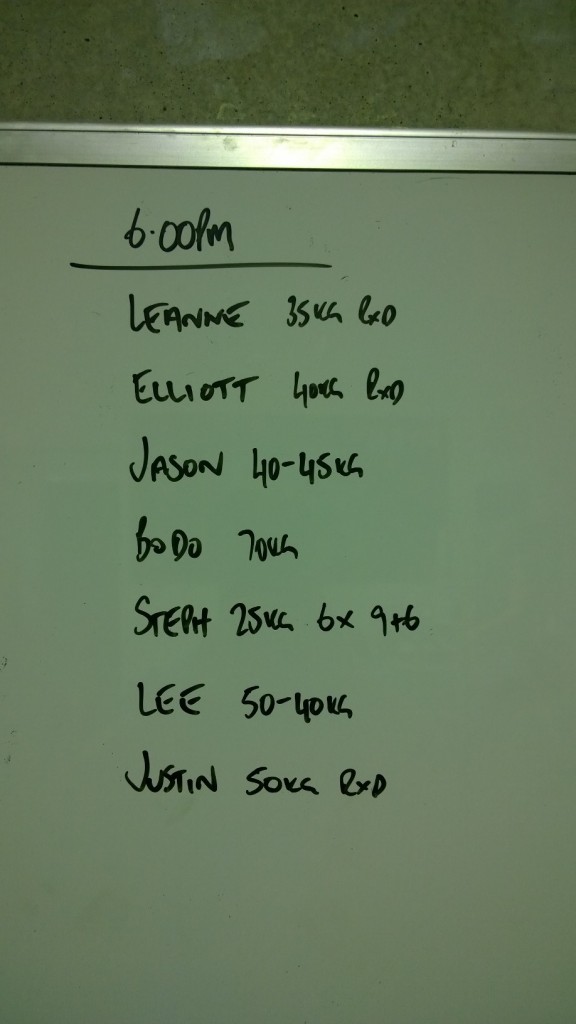 6.00PM
LEANNE 35KG RxD
ELLIOTT 40KG RxD
JASON 40-45KG
BODO 70KG
STEPH 25KG 6x 9+6
LEE 50-40KG
JUSTIN 50KG RxD